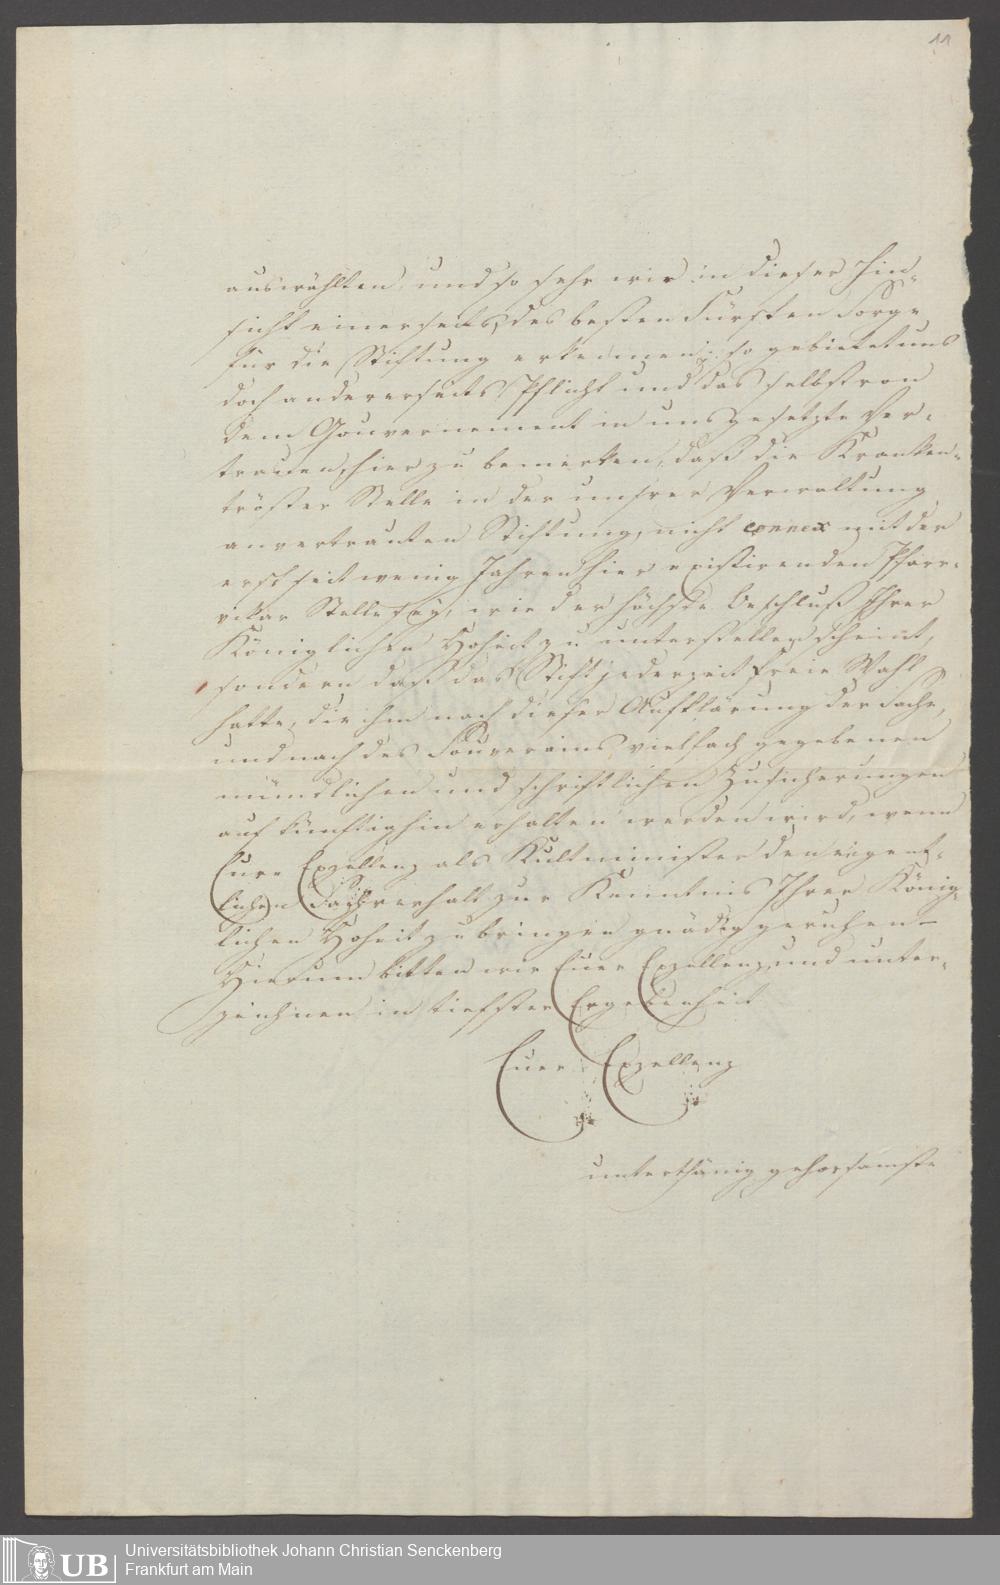 11
auswählten, und so sehr wir in dieser Hin-
sicht einerseits, des besten Fürsten Sorge
für die Stiftung erkennen: so gebietet uns
doch andererseits Pflicht und das selbst von
dem Gouvernement in uns gesetzte Ver-
trauen, hier zu bemerken, daß die Kranken-
tröster Stelle in der unsrer Verwaltung
anvertrauten Stiftung, nicht connex mit der
erst seit wenig Jahren hier existirenden Pfarr-
vikar Stelle sey, wie der höchste Beschluß Ihrer
Königlichen Hoheit zu unterstellen scheint,
sondern daß das Stift jederzeit freie Wahl
hatte, die ihm nach dieser Aufklärung der Sache,
und nach des Souverains vielfach gegebenen
mündlichen und schriftlichen Zusicherungen
auf künftighin erhalten werden wird, wenn
Eure Exzellenz als Kultminister den eigent-
lichen Sachverhalt zur Kenntnis Ihrer König-
lichen Hoheit zu bringen gnädig geruhen –
Hierum bitten wir Euer Exzellenz, und unter-
zeichnen in tiefster Ergebenheit
Euer Exzellenz
unterthänig gehorsamste
UB
Universitätsbibliothek Johann Christian Senckenberg
Frankfurt am Main